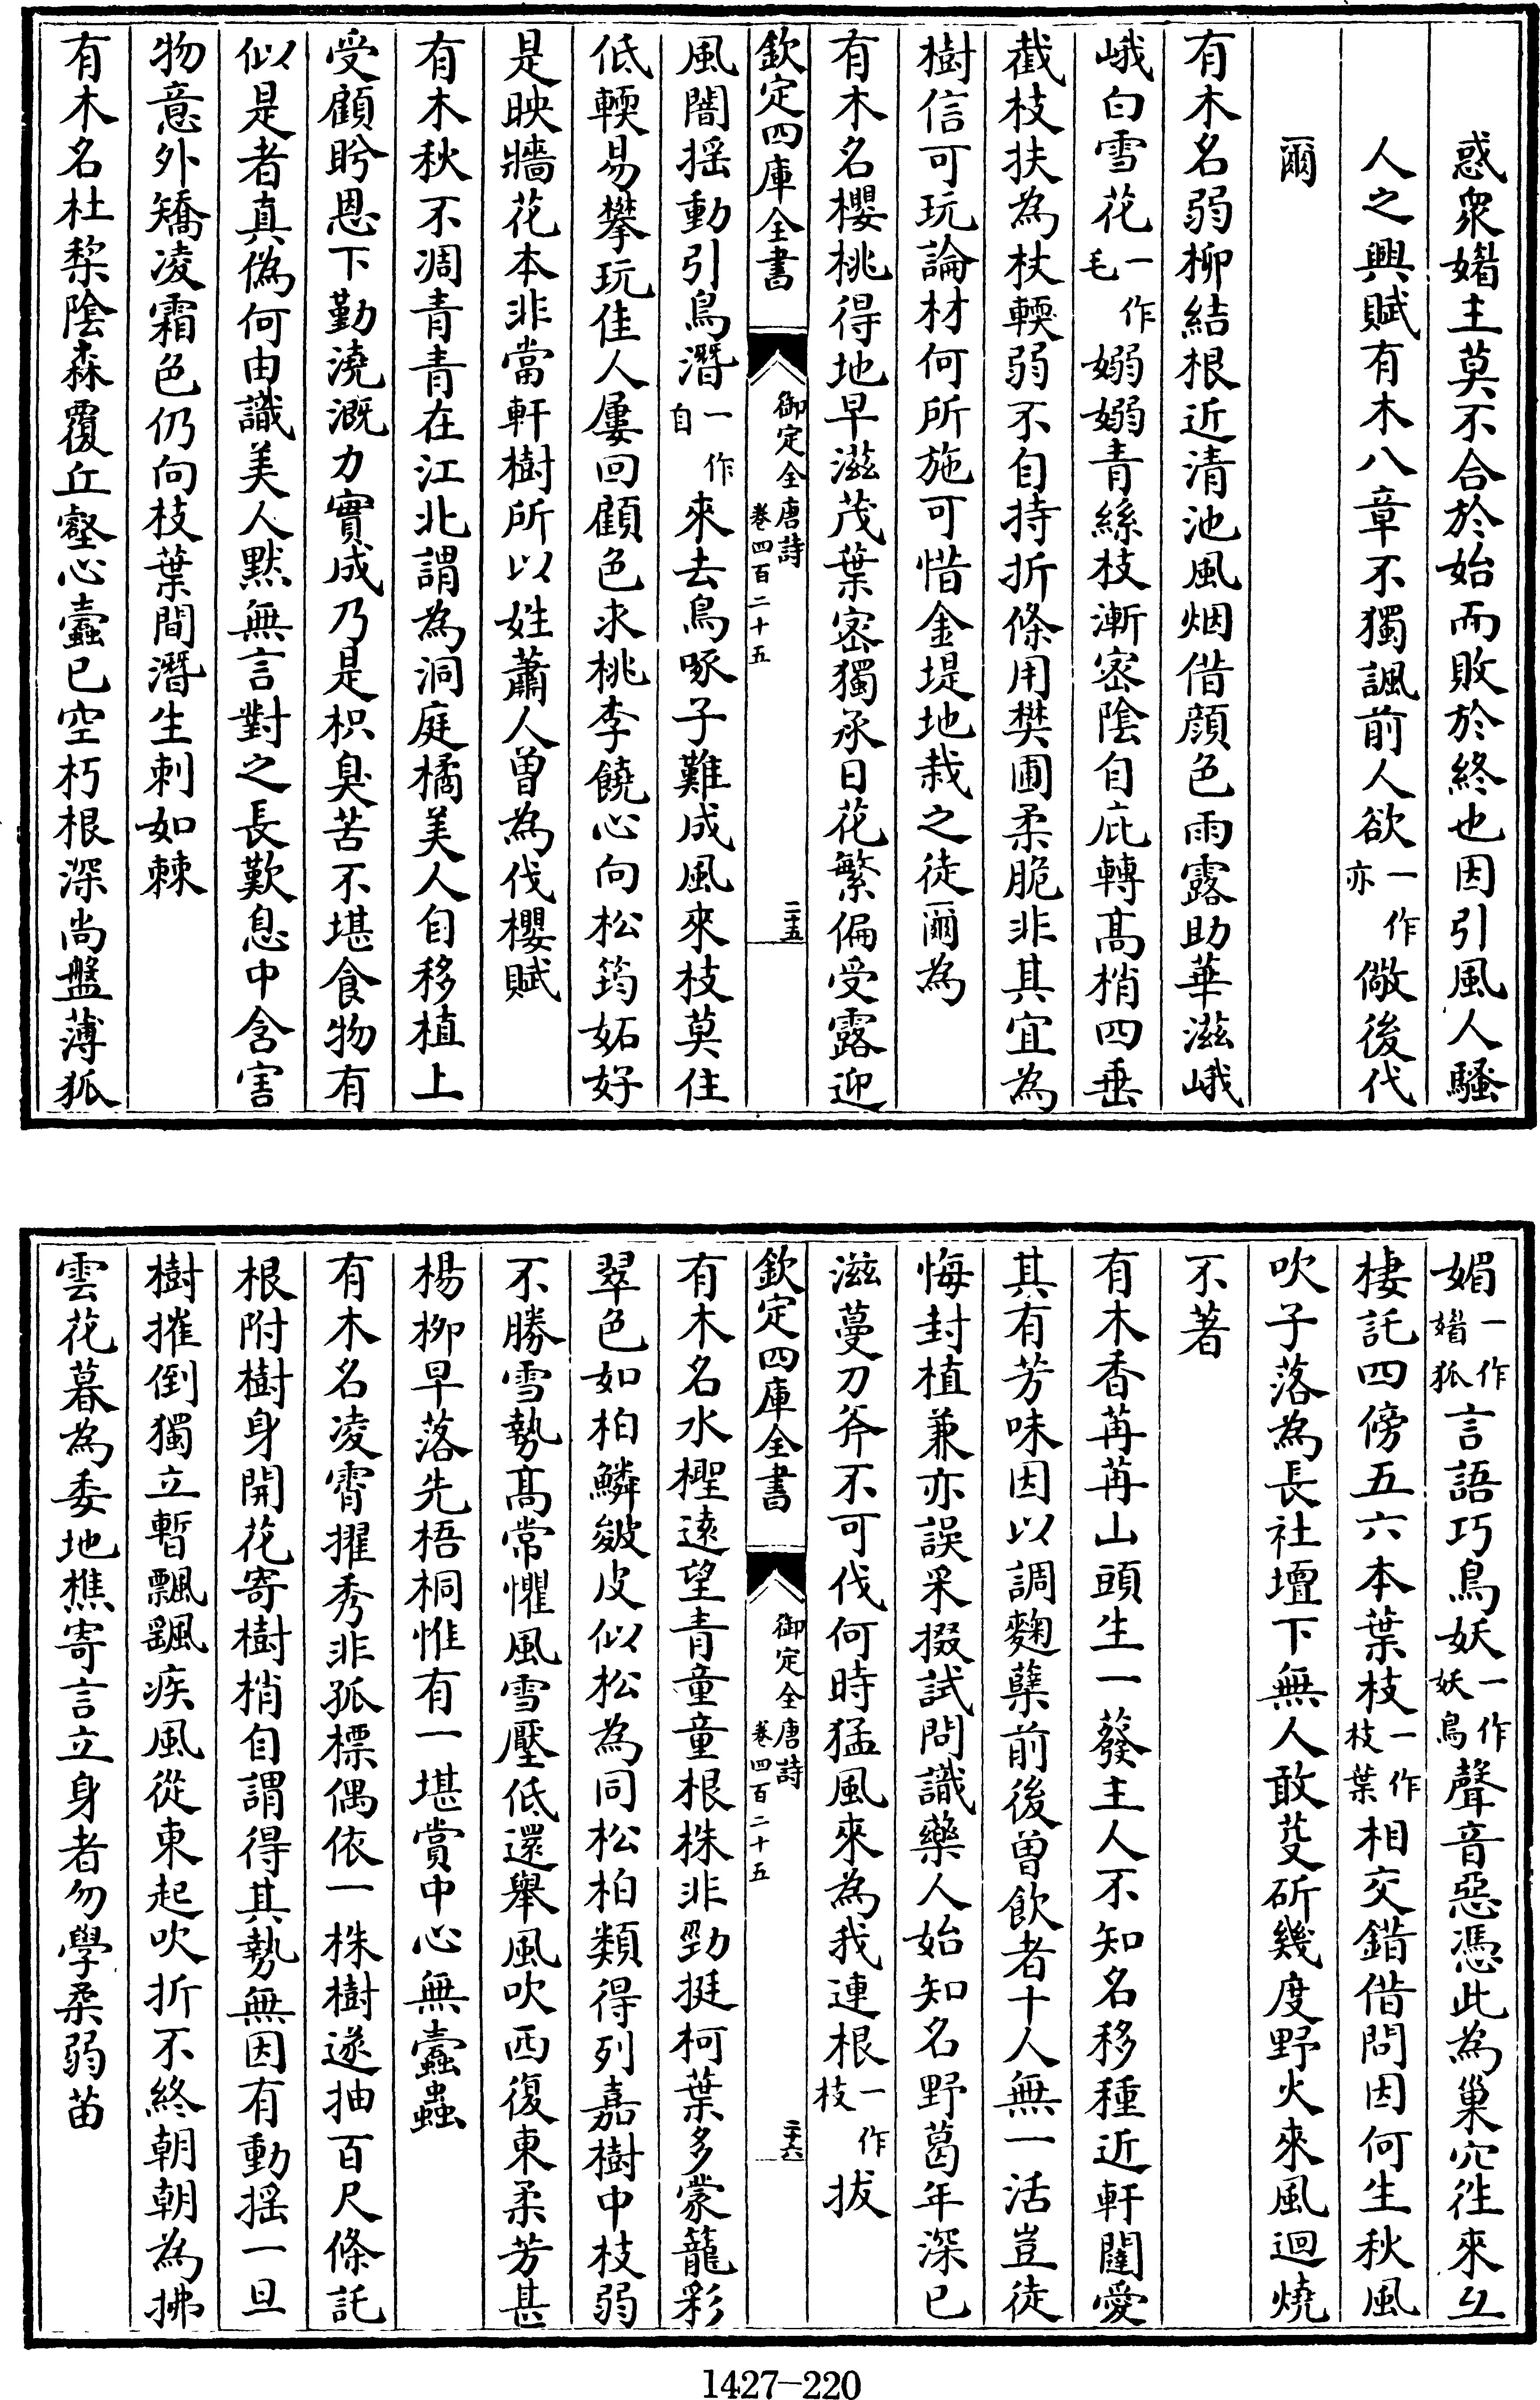 惑衆媚主莫不合於始而敗於終也因引風人騷
人之興賦有木八章不獨諷前人欲一作亦儆後代
爾
有木名弱柳結根近清池風烟借顔色雨露助華滋峨
峨白雪花一作毛嫋嫋青絲枝漸密陰自庇轉髙梢四垂
截枝扶為杖輭弱不自持折條用樊圃柔脆非其宜為
樹信可玩論材何所施可惜金堤地栽之徒爾為
有木名櫻桃得地早滋茂葉密獨承日花繁偏受露迎
欽定四庫全書 御定全唐詩 卷四百二十五 二十五
風闇揺動引鳥潛一作自來去鳥啄子難成風來枝莫住
低輭易攀玩佳人屢回顧色求桃李饒心向松筠妬好
是映牆花本非當軒樹所以姓蕭人曽為伐櫻賦
有木秋不凋青青在江北謂為洞庭橘美人自移植上
受顧盼恩下勤澆溉力實成乃是枳臭苦不堪食物有
似是者真偽何由識美人黙無言對之長歎息中含害
物意外矯凌霜色仍向枝葉間潛生刺如棘
有木名杜棃陰森覆丘壑心蠹已空朽根深尚盤薄狐
媚一作媚狐言語巧鳥妖一作妖鳥聲音惡憑此為巢穴徃來互
棲託四傍五六本葉枝一作枝葉相交錯借問因何生秋風
吹子落為長社壇下無人敢芟斫幾度野火來風迴燒
不著
有木香苒苒山頭生一蕟主人不知名移種近軒闥愛
其有芳味因以調麴糵前後曽飲者十人無一活豈徒
悔封植兼亦誤采掇試問識藥人始知名野葛年深已
滋蔓刀斧不可伐何時猛風來為我連根一作枝拔
欽定四庫全書 御定全唐詩 卷四百二十五 二十六
有木名水檉逺望青童童根株非勁挺柯葉多蒙籠彩
翠色如柏鱗皴皮似松為同松柏類得列嘉樹中枝弱
不勝雪勢髙常懼風雪壓低還舉風吹西復東柔芳甚
楊柳早落先梧桐惟有一堪賞中心無蠹蟲
有木名凌霄擢秀非孤標偶依一株樹遂抽百尺條託
根附樹身開花寄樹梢自謂得其勢無因有動揺一旦
樹摧倒獨立暫飄颻疾風從東起吹折不終朝朝為拂
雲花暮為委地樵寄言立身者勿學柔弱苗
1427-220